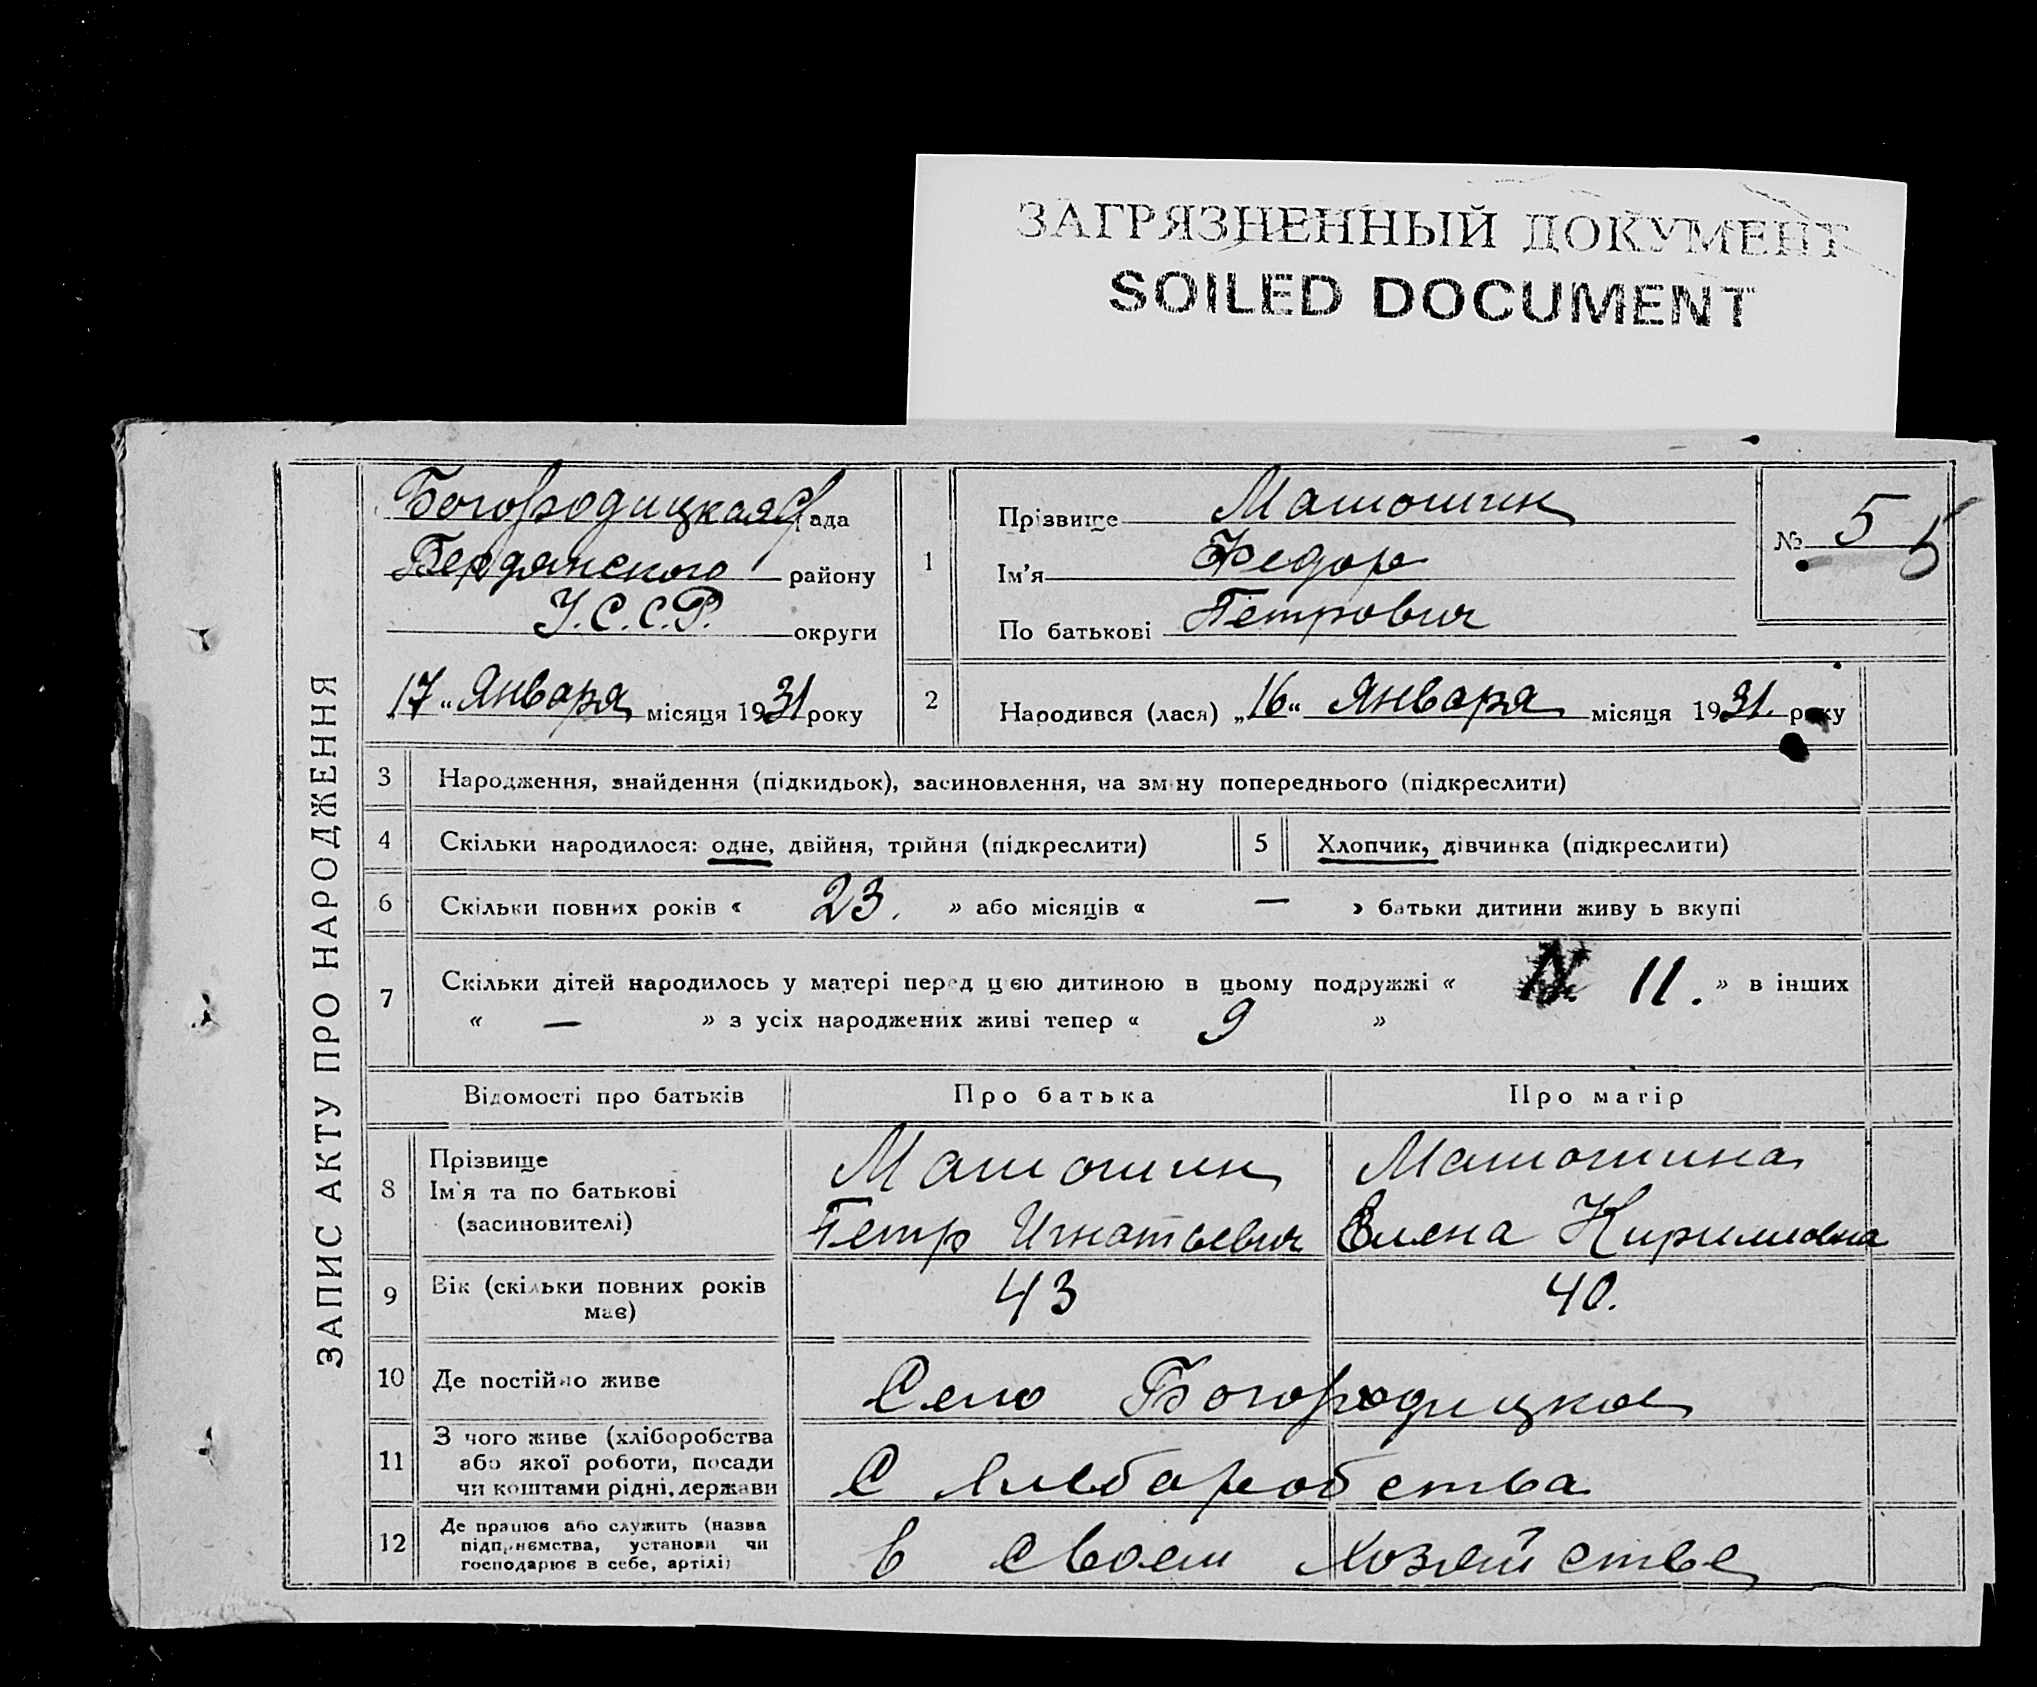 ЗАГРЯЗНЕННЫЙ ДОКУМЕНТ
SOILED DOCUMENT
ЗАПИС АКТУ ПРО НАРОДЖЕННЯ
Богородицкая рада
Бердянского району
У.С.С.Р. округи
„17“ Января місяця 1931 року
1
Прізвище Матюшин
Ім'я Федор
По батькові Петрович
№ 5
5
2
Народився (лася) „16“ Января місяця 1931. року
3 Народження, знайдення (підкидьок), засиновлення, на зміну попереднього (підкреслити)
4 Скільки народилося: одне, двійня, трійня (підкреслити)
5 Хлопчик, дівчинка (підкреслити)
6 Скільки повних років « 23. » або місяців « — » батьки дитини живуть вкупі
7 Скільки дітей народилось у матері перед цією дитиною в цьому подружжі « 11. » в інших
« — » з усіх народжених живі тепер « 9 »
Відомості про батьків Про батька Про матір
8 Прізвище
Ім'я та по батькові
(засиновителі)
Матюшин
Петр Игнатьевич
Матюшина
Елена Кирилловна
9 Вік (скільки повних років
має)
43
40.
10 Де постійно живе
Село Богородицкое
11 З чого живе (хліборобства
або якої роботи, посади
чи коштами рідні, держави
С хлеборобства
12 Де працює або служить (назва
підприємства, установи чи
господарює в себе, артілі)
в своем хозяйстве